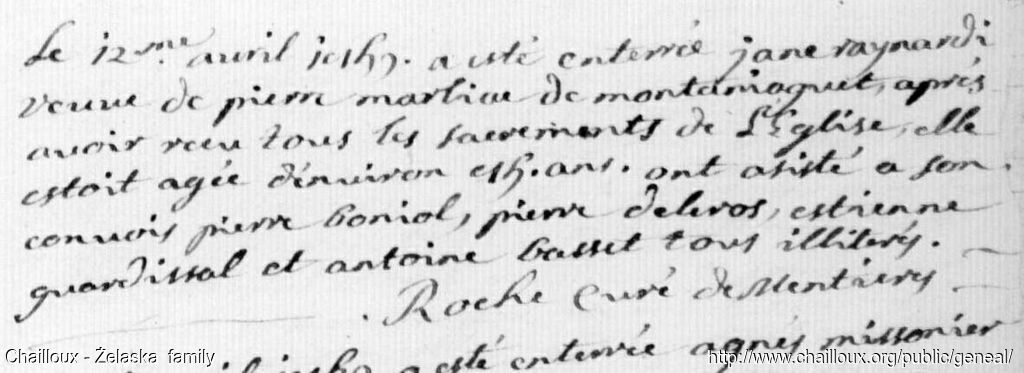 Le 12me. avril a esté enterrée jane raynardi
veuve de pierre martiou de montamagnet, aprés
avoir receu tous les sacrements de L'Eglise, elle
estoit agée d'environ ans. ont asisté a son
convois pierre boniol, pierre deleros, estienne
guardissal et antoine basset tous illiterés.
Roche Curé de Mentieres
a esté enterrée agnes missonier
Chailloux - Želaska family
http://www.chailloux.org/public/geneal/